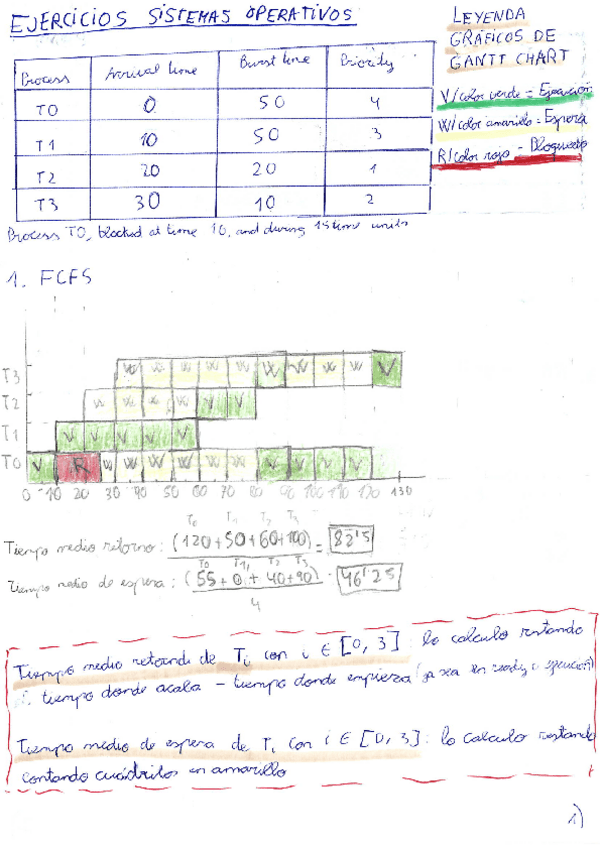 EJERCICIOS SISTEMAS OPERATIVOS
LEYENDA
GRÁFICOS DE
GANTT CHART
V/color verde = Ejecución
W/color amarillo = Espera
R/color rojo = Bloqueado
Process Arrival time Burst time Priority
T0 0 50 4
T1 10 50 3
T2 20 20 1
T3 30 10 2
Process T0, blocked at time 10, and during 15 time units
1. FCFS
T3 W W W W W W W W W V
T2 W W W W V V
T1 V V V V V
T0 V R W W W W W W V V V V
0 10 20 30 40 50 60 70 80 90 100 110 120 130
T0 T1 T2 T3
Tiempo medio retorno: (120+50+60+100) = 82'5
T0 T1 T2 T3
Tiempo medio de espera: (55+0+40+90) 46'25
4
Tiempo medio retorno de Ti con i ∈ [0, 3]: lo calculo restando
tiempo donde acaba – tiempo donde empieza (ya sea en ready o ejecución)
Tiempo medio de espera de Ti con i ∈ [0, 3]: lo calculo restando
contando cuadritos en amarillo
1)